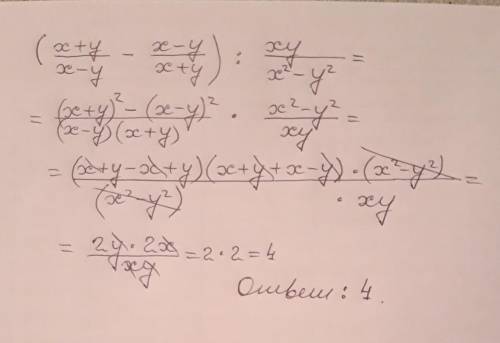 ( (x+y)/(x-y) - (x-y)/(x+y) ) : xy/(x²-y²) =
= ((x+y)² - (x-y)²)/((x-y)(x+y)) · (x²-y²)/xy =
= ((x+y-x+y)(x+y+x-y) · (x²-y²))/((x²-y²) · xy) =
= (2y · 2x)/(xy) = 2 · 2 = 4
Ответ: 4.